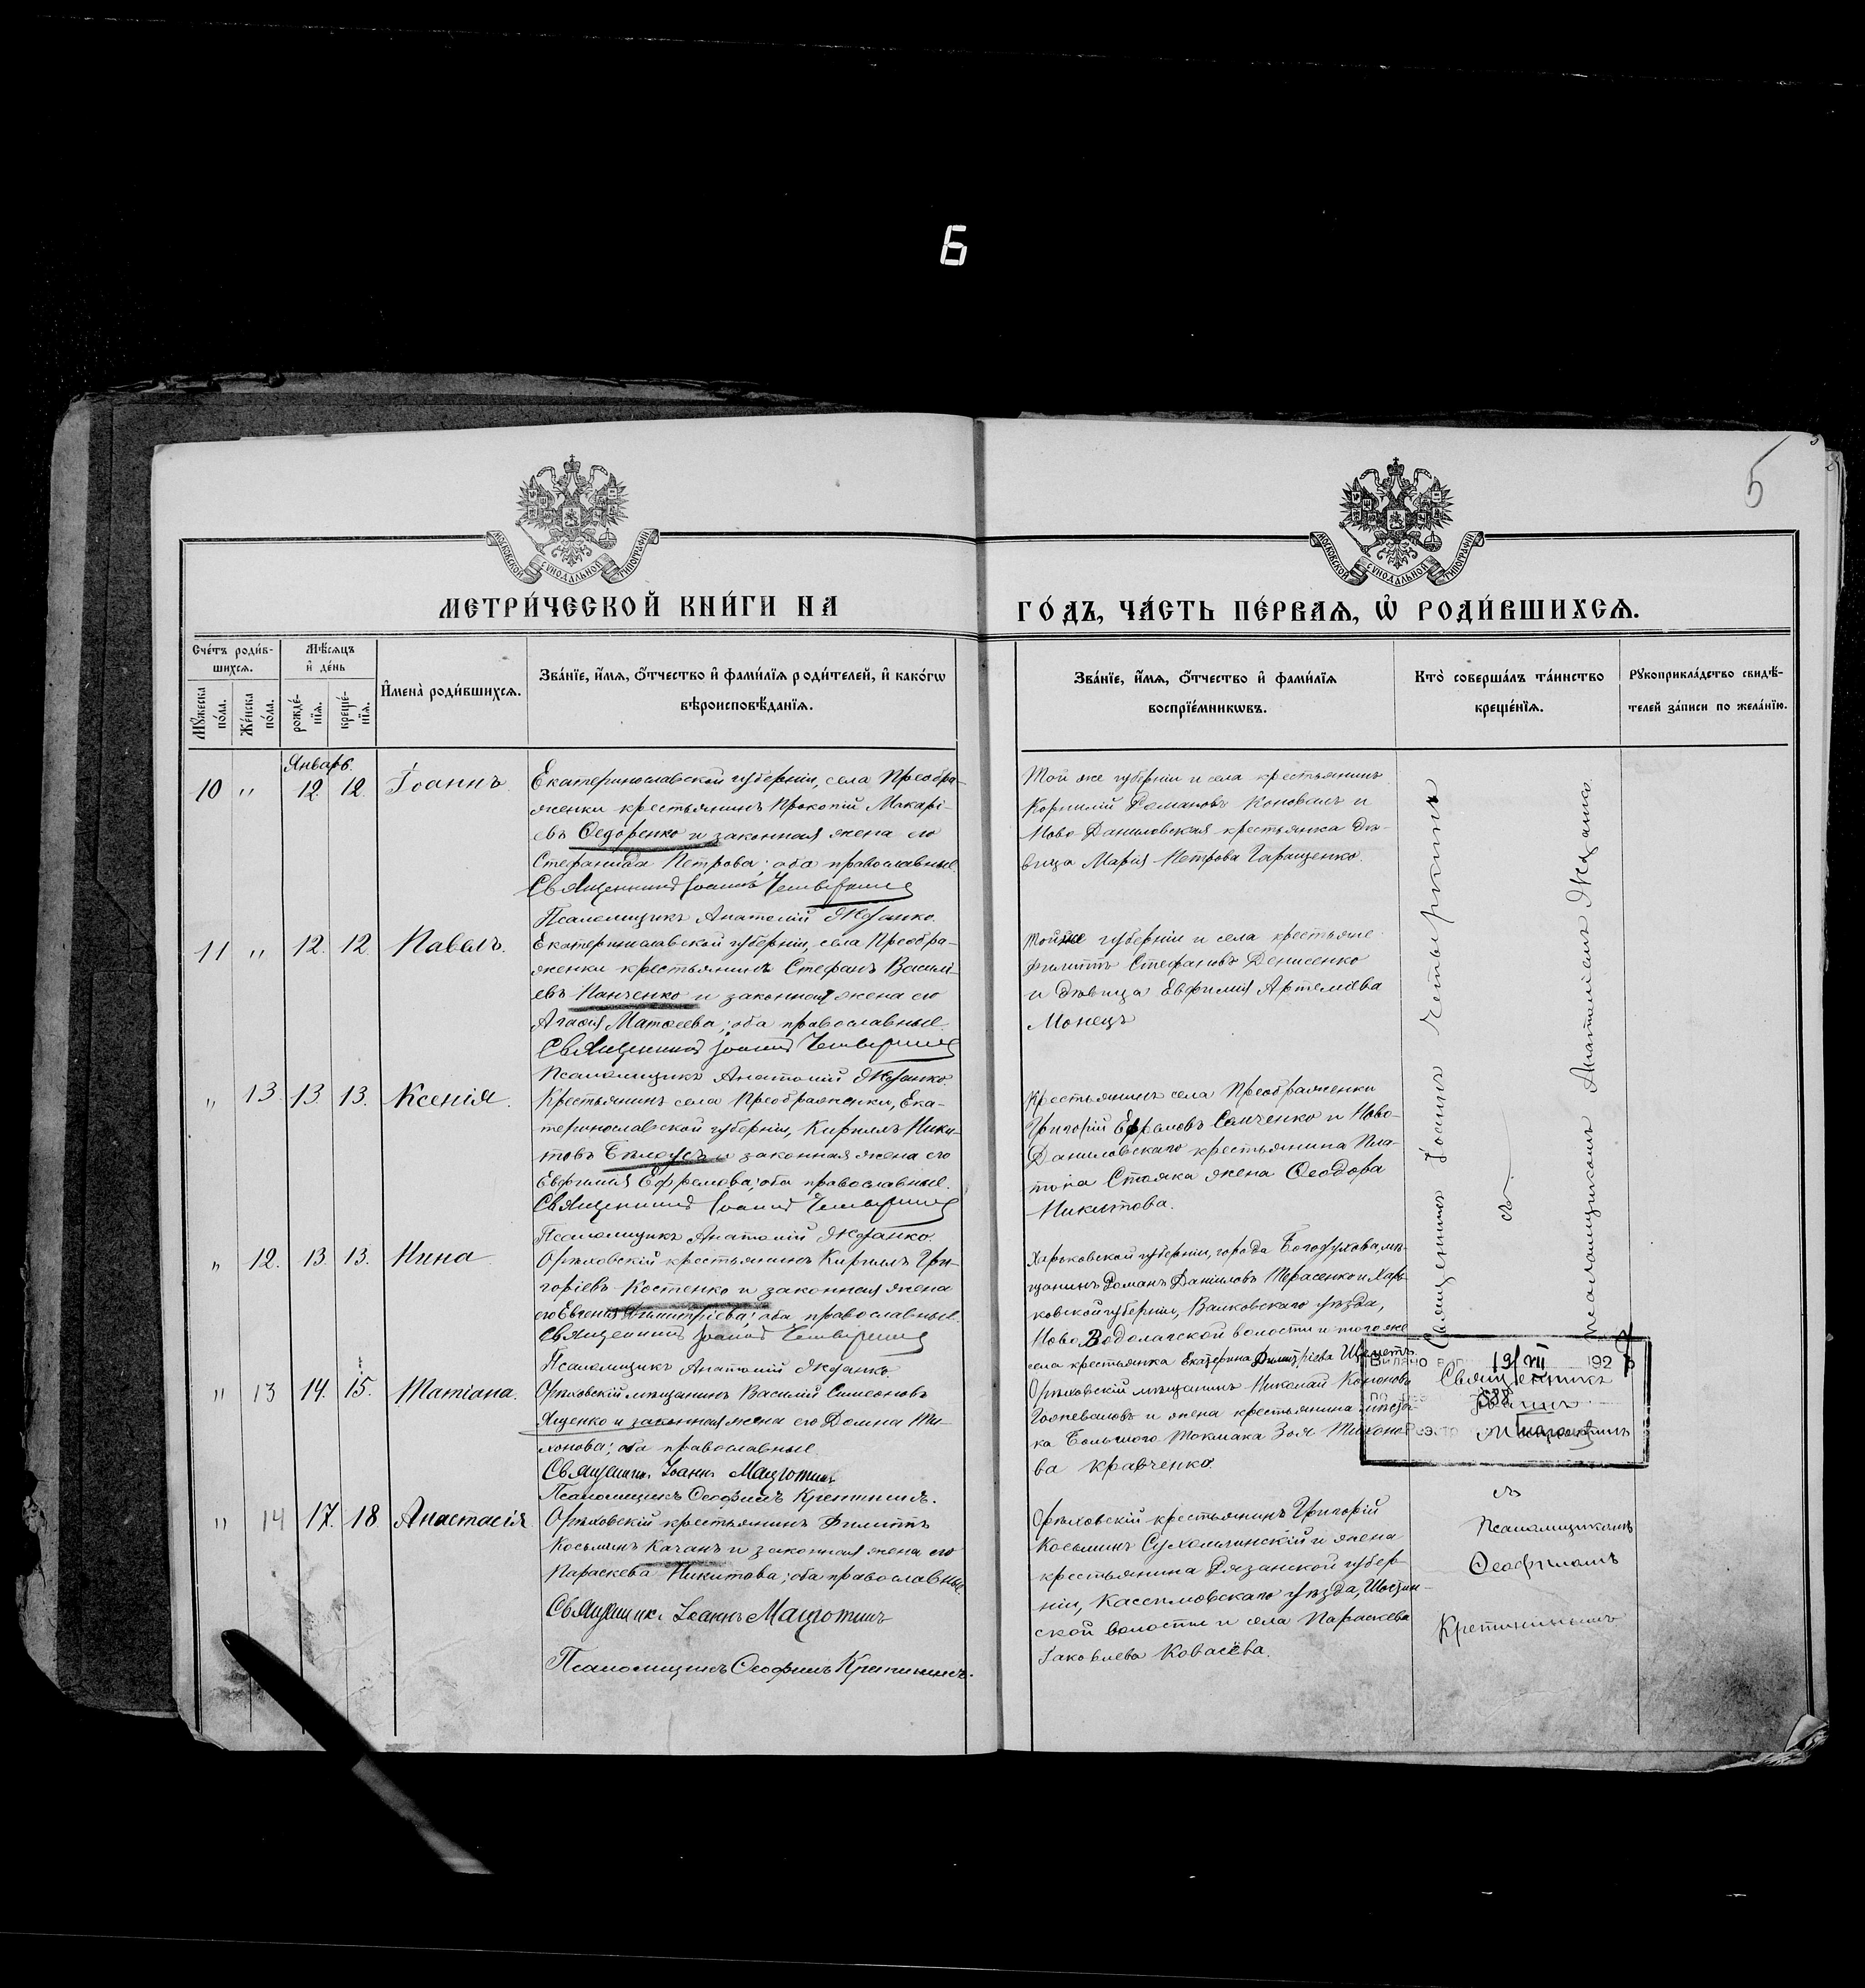 6
5
МОСКОВСКОЙ СУНОДАЛЬНОЙ ТИПОГРАФІИ
МОСКОВСКОЙ СУНОДАЛЬНОЙ ТИПОГРАФІИ
МЕТРИ́ЧЕСКОЙ КНИ́ГИ НА
ГО́ДЪ, ЧА́СТЬ ПЕ́РВАѦ, Ѡ҆ РОДИ́ВШИХСѦ.
Сче́тъ роди́в-
шихсѧ.
Мѹ́жеска
по́ла.
Же́нска
по́ла.
Мѣ́сѧцъ
и҆ де́нь
рожде́-
нїѧ.
креще́-
нїѧ.
И҆мена̀ роди́вшихсѧ.
Зва́нїе, и҆́мѧ, ѻ҆́тчество и҆ фами́лїѧ роди́телей, и҆ како́гѡ
вѣроисповѣ́данїѧ.
Зва́нїе, и҆́мѧ, ѻ҆́тчество и҆ фами́лїѧ
воспрїе́мникѡвъ.
Кто̀ соверша́лъ та́инство
креще́нїѧ.
Рѹкоприкла́дство свидѣ́-
телей за́писи по жела́нїю.
Январь.
10 " 12. 12. Іоаннъ.
Екатеринославской губерніи, села Преобра-
женки крестьянинъ Прокопій Макарі-
евъ Ѳедоренко и законная жена его
Стефанида Петрова; оба православные.
Священникъ Іоаннъ Четыркинъ
Псаломщикъ Анатолій Жданко.
Той же губерніи и села крестьянинъ
Корнилій Романовъ Коновалъ и
Ново Даниловская крестьянка дѣ-
вица Марія Петрова Гаращенко.
11 " 12. 12. Павелъ.
Екатеринославской губерніи, села Преобра-
женки крестьянинъ Стефанъ Василі-
евъ Панченко и законная жена его
Агаѳія Матѳеева; оба православные.
Священникъ Іоаннъ Четыркинъ
Псаломщикъ Анатолій Жданко.
Той же губерніи и села крестьяне
Филиппъ Стефановъ Денисенко
и дѣвица Евфимія Артеміева
Монецъ
" 13. 13. 13. Ксенія.
Крестьянинъ села Преображенки, Ека-
теринославской губерніи, Кириллъ Ники-
товъ Бѣлоусъ и законная жена его
Евфимія Ефремова; оба православные.
Священникъ Іоаннъ Четыркинъ
Псаломщикъ Анатолій Жданко.
Крестьянинъ села Преображенки
Григорій Ефремовъ Семченко и Ново-
Даниловскаго крестьянина Пла-
тона Стояка жена Ѳеодора
Никитова.
" 12. 13. 13. Нина
Орѣховскій крестьянинъ Кириллъ Гри-
горіевъ Костенко и законная жена
его Евгенія Димитріева; оба православные.
Священникъ Іоаннъ Четыркинъ
Псаломщикъ Анатолій Жданко.
Харьковской губерніи, города Богодухова, мѣ-
щанинъ Романъ Даніиловъ Тарасенко и Харь-
ковской губерніи, Валковскаго уѣзда,
Ново Водолагской волости и того же
села крестьянка Екатерина Димитріева
" 13 14. 15. Татіана.
Орѣховскій мѣщанинъ Василій Симеоновъ
Яценко и законная жена его Домна Ти-
хонова; оба православные.
Священникъ Іоаннъ
Псаломщикъ Ѳеофилъ Кретининъ.
Орѣховскій мѣщанинъ Николай Кононовъ
и жена крестьянина
ка Большого Токмака Зоя Тихоно-
ва Кравченко.
" 14 17. 18. Анастасія
Орѣховскій крестьянинъ Филиппъ
Косьминъ Качанъ и законная жена его
Параскева Никитова; оба православные.
Священникъ Іоаннъ
Псаломщикъ Ѳеофилъ Кретининъ.
Орѣховскій крестьянинъ Григорій
Косьминъ Сухомлинскій и жена
крестьянина Рязанской губер-
ніи, Кассимовскаго уѣзда,
ской волости и села Параскева
Іаковлева
Священникъ Іоаннъ Четыркинъ
съ
псаломщикомъ Анатоліемъ Жданко.
19/VII 192
588
Священникъ
Іоаннъ
съ
Псаломщикомъ
Ѳеофиломъ
Кретининымъ